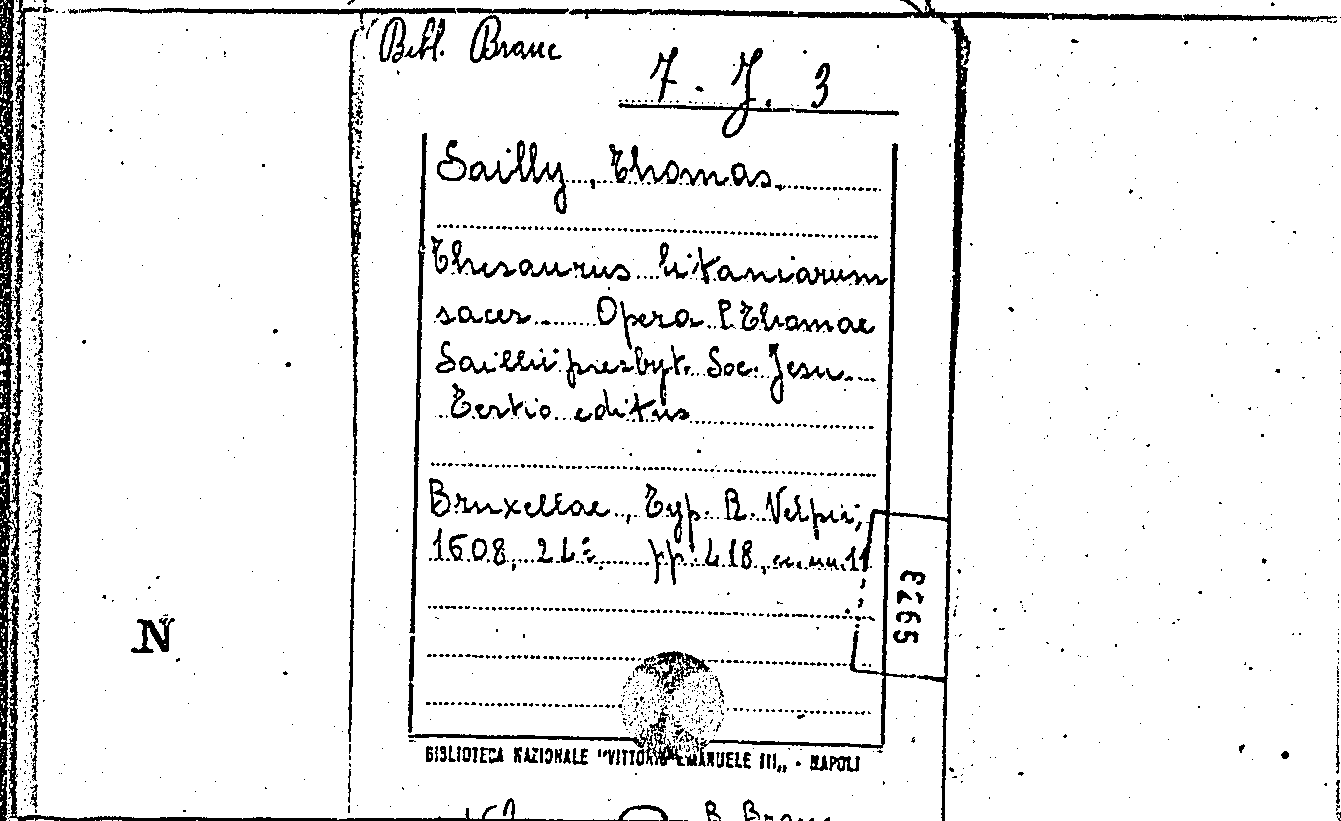 Bibl. Branc
7. J. 3
Sailly, Thomas.
Thesaurus litaniarum
sacer... Opera P. Thomae
Saillii presbyt. Soc. Jesu...
Tertio editus
Bruxellae, Typ. R. Velpii,
1608, 24º pp. 418, 11
5973
N
BIBLIOTECA NAZIONALE "VITTORIO EMANUELE III,, - NAPOLI
B. Branc